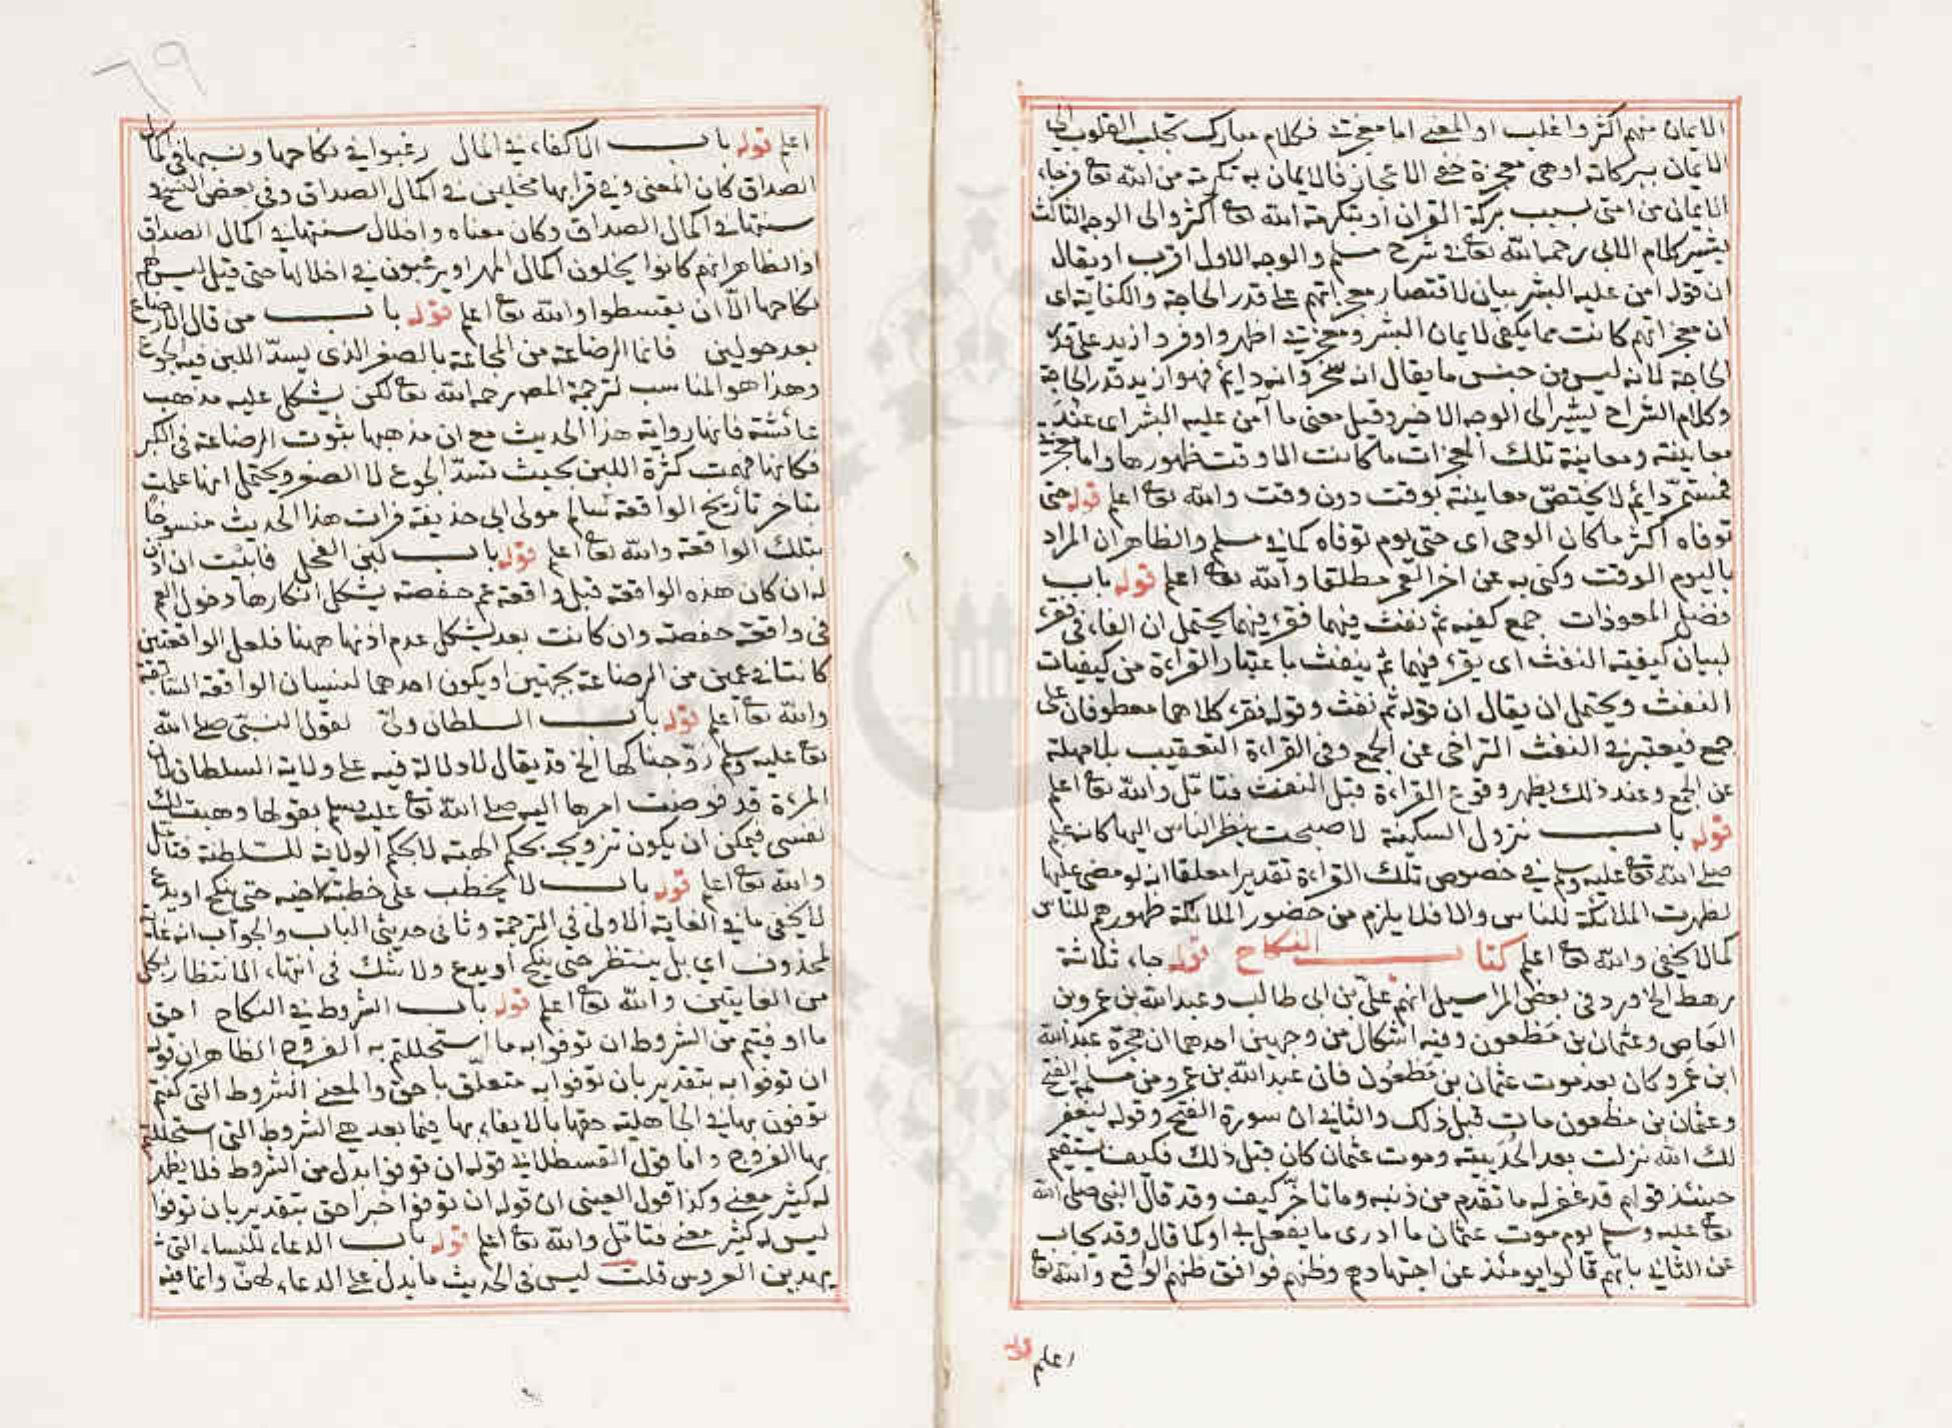 الايمان منهم اكثر واغلب او المعنى اما معجزتي فكلام مبارك تجلب القلوب الى
الايمان ببركاته او هي معجزة خفي الاعجاز فالايمان به تكرمة من الله تعا فرجاء
الايمان من امتى بسبب بركة القران او بتكرمة الله تعا اكثر والى الوجه الثالث
يشير كلام الابي رحمه الله تعا في شرح مسلم والوجه الاول اقرب او يقال
ان قوله امن عليه البشر بيان لاقتصار معجزاتهم على قدر الحاجة والكفاية اى
ان معجزاتهم كانت مما يكفى لايمان البشر ومعجزتي اظهر واوفر وازيد على قدر
الحاجة لانه ليس من جنس ما يقال انه سحر وانه دايم فهو ازيد قدر الحاجة
وكلام الشراح يشير الى الوجه الاخير وقيل معنى ما آمن عليه البشر اى عند
معاينته ومعاينة تلك المعجزات ما كانت الا وقت ظهورها واما معجزتي
فمستمر دائم لا يختص معاينته بوقت دون وقت والله تعا اعلم قوله حتى
توفاه اكثر ما كان الوحى اى حتى يوم توفاه كما في مسلم والظاهر ان المراد
باليوم الوقت وكنى به عن اخر العمر مطلقا والله تعا اعلم قوله باب
فضل المعوذات جمع كفيه ثم نفث فيهما فقرء فيهما يحتمل ان الفاء في فقرء
لبيان كيفية النفث اى يقرء فيهما ثم ينفث باعتبار القراءة من كيفيات
النفث ويحتمل ان يقال ان قوله ثم نفث وقوله فقرء كلاهما معطوفان على
جمع فيعتبر في النفث التراخى عن الجمع وفى القراءة التعقيب بلا مهلة
عن الجمع وعند ذلك يظهر وقوع القراءة قبل النفث فتامل والله تعا اعلم
قوله باب نزول السكينة لاصبحت ينظر الناس اليها كانه علم
صلى الله تعا عليه وسلم في خصوص تلك القراءة تقديرا معلقا انه لو مضى عليها
لظهرت الملائكة للناس والا فلا يلزم من حضور الملائكة ظهورهم للناس
كما لا يخفى والله تعا اعلم كتاب النكاح قوله جاء ثلاثة
رهط الخ ورد فى بعض المراسيل انهم على بن ابى طالب وعبد الله بن عمرو بن
العاص وعثمان بن مظعون وفيه اشكال من وجهين احدهما ان هجرة عبد الله
ابن عمرو كان بعد موت عثمان بن مظعون فان عبد الله بن عمرو من مسلمي الفتح
وعثمان بن مظعون مات قبل ذلك والثاني ان سورة الفتح وقوله ليغفر
لك الله نزلت بعد الحديبية وموت عثمان كان قبل ذلك فكيف يستقيم
حينئذ قولهم قد غفر له ما تقدم من ذنبه وما تاخر كيف وقد قال النبى صلى الله
تعا عليه وسلم يوم موت عثمان ما ادرى ما يفعل بي او كما قال وقد يجاب
عن الثاني بانهم قالوا يومئذ عن اجتهادهم وظنهم فوافق ظنهم الواقع والله تعا
اعلم قوله
٦٩
اعلم قوله باب الاكفاء في المال رغبوا في نكاحها ونسبها في اكمال
الصداق كان المعنى وفي قرابها مخلين في اكمال الصداق وفى بعض النسخ و
سنتها في اكمال الصداق وكان معناه واخلال سنتها في اكمال الصداق
اذ الظاهر انهم كانوا يخلون اكمال المهر او يرغبون في اخلالها حتى قيل ليس لهم
نكاحها الا ان يقسطوا والله تعا اعلم قوله باب من قال لا رضاع
بعد حولين فانما الرضاعة من المجاعة بالصغر الذى يسد اللبن فيه الجوع
وهذا هو المناسب لترجمة المص رحمه الله تعا لكن يشكل عليه مذهب
عائشة فانها رواية هذا الحديث مع ان مذهبها بثوت الرضاعة فى الكبر
فكانها فهمت كثرة اللبن بحيث تسد الجوع لا الصغر ويحتمل انها علمت
بتاخر تأريخ الواقعة سالم مولى ابى حذيفة فرات هذا الحديث منسوخا
بتلك الواقعة والله تعا اعلم قوله باب لبن الفحل فابيت ان اذن
له ان كان هذه الواقعة قبل واقعة عم حفصة يشكل انكارها دخول العم
فى واقعة حفصة وان كانت بعد يشكل عدم اذنها ههنا فلعل الواقعتين
كانتا في عمين من الرضاعة بجهتين او يكون احدهما لنسيان الواقعة السابقة
والله تعا اعلم قوله باب السلطان ولى لقول النبى صلى الله
تعا عليه وسلم زوجناكها الخ قد يقال لا دلالة فيه على ولاية السلطان لان
المرءة قد فوضت امرها اليه صلى الله تعا عليه وسلم بقولها وهبت لك
نفسى فيمكن ان يكون تزويجه بحكم الهبة لا بحكم الولاية للسلطنة فتامل
والله تعا اعلم قوله باب لا يخطب على خطبة اخيه حتى ينكح او يدع
لا يخفى ما في الغاية الاولى فى الترجمة وثانى حديثى الباب والجواب انه غاية
لمحذوف اي بل ينتظر حتى ينكح او يدع ولا شك فى انتهاء الانتظار بكل
من الغايتين والله تعا اعلم قوله باب الشروط في النكاح احق
ما اوفيتم من الشروط ان توفوا به ما استحللتم به الفروج الظاهر ان قوله
ان توفوا به بتقدير بان توفوا به متعلق باحق والمعنى الشروط التى كنتم
توفون بها في الجاهلية حقها بالايفاء بها فيما بعد هي الشروط التى استحللتم
بها الفروج واما قول القسطلاني قوله ان توفوا بدل من الشروط فلا يظهر
له كثير معنى وكذا قول العينى ان قوله ان توفوا خبر احق بتقدير بان توفوا
ليس له كثير معنى فتامل والله تعا اعلم قوله باب الدعاء للنساء التى
يهدين العروس قلت ليس فى الحديث ما يدل على الدعاء لهن وانما فيه